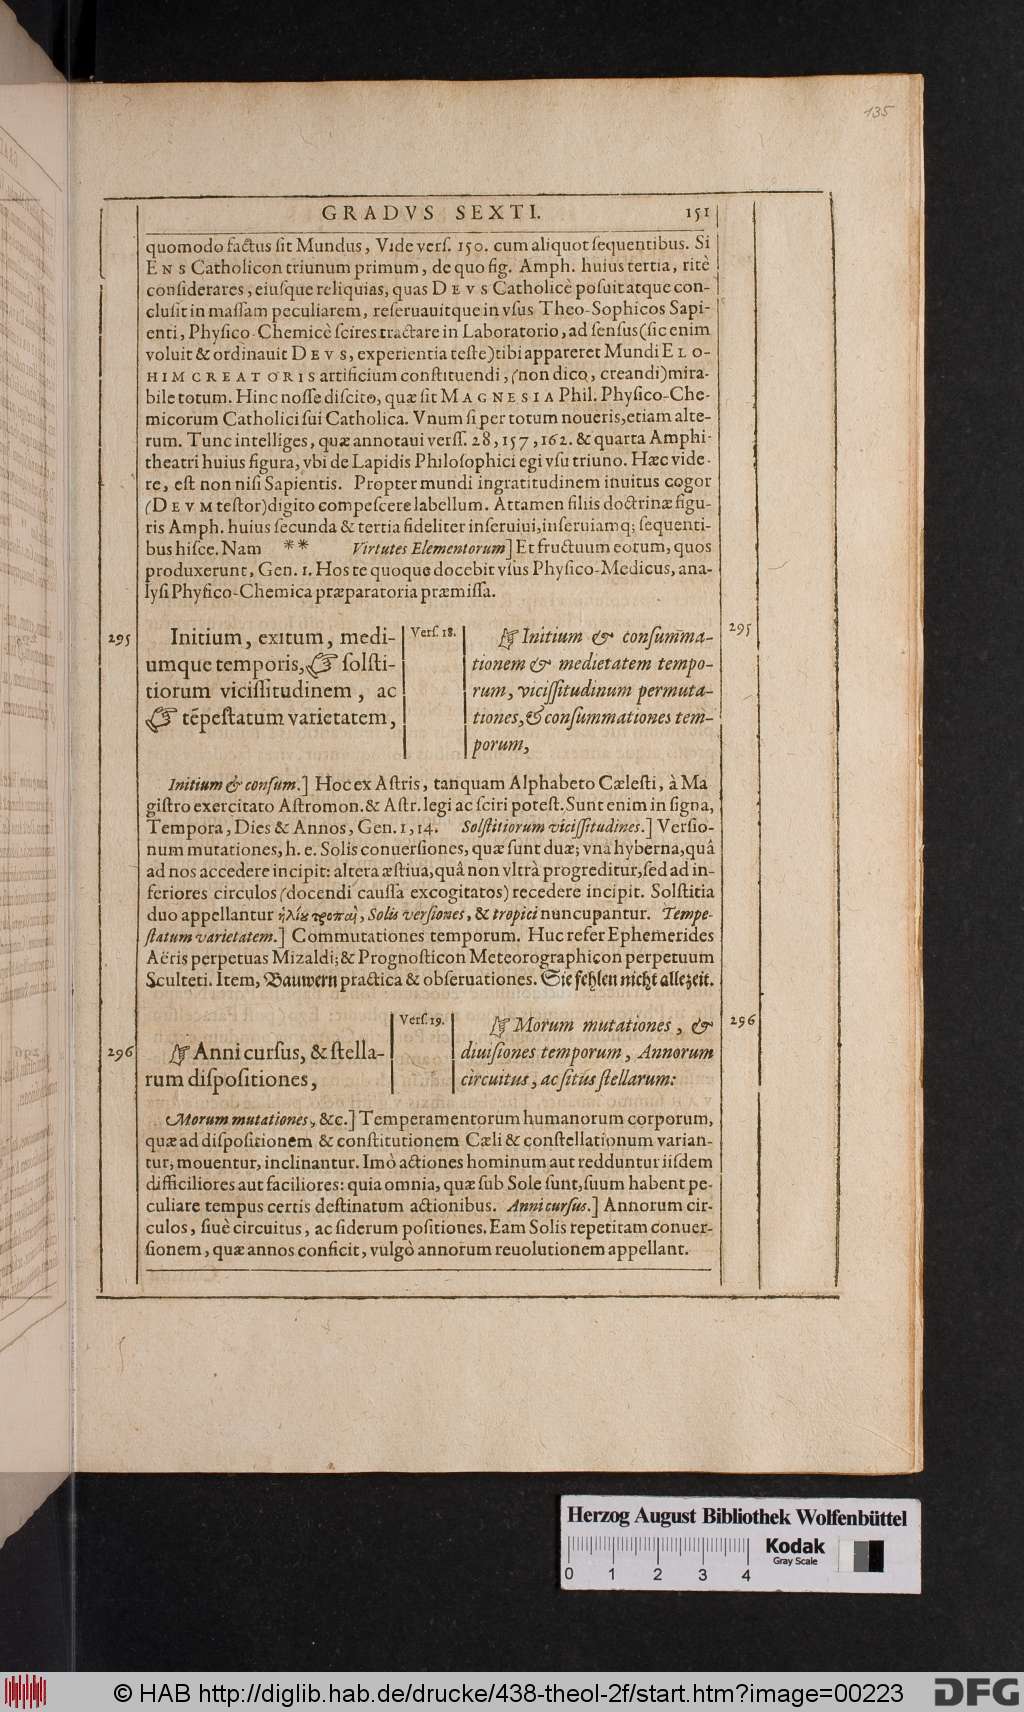 135
GRADVS SEXTI. 151
quomodo factus ſit Mundus, Vide verſ. 150. cum aliquot ſequentibus. Si
ENS Catholicon triunum primum, de quo fig. Amph. huius tertia, ritè
conſiderares, eiuſque reliquias, quas DEVS Catholicè poſuit atque con-
cluſit in maſſam peculiarem, reſeruauitque in vſus Theo-Sophicos Sapi-
enti, Phyſico-Chemicè ſcires tractare in Laboratorio, ad ſenſus (ſic enim
voluit & ordinauit DEVS, experientia teſte) tibi appareret Mundi ELO-
HIM CREATORIS artificium conſtituendi, (non dico, creandi) mira-
bile totum. Hinc noſſe diſcito, quæ ſit MAGNESIA Phil. Phyſico-Che-
micorum Catholici ſui Catholica. Vnum ſi per totum noueris, etiam alte-
rum. Tunc intelliges, quæ annotaui verſſ. 28, 157, 162. & quarta Amphi-
theatri huius figura, vbi de Lapidis Philoſophici egi vſu triuno. Hæc vide-
re, eſt non niſi Sapientis. Propter mundi ingratitudinem inuitus cogor
(DEVM teſtor) digito compeſcere labellum. Attamen filiis doctrinæ figu-
ris Amph. huius ſecunda & tertia fideliter inſeruiui, inſeruiamq; ſequenti-
bus hiſce. Nam ** Virtutes Elementorum] Et fructuum eorum, quos
produxerunt, Gen. 1. Hos te quoque docebit vſus Phyſico-Medicus, ana-
lyſi Phyſico-Chemica præparatoria præmiſſa.
295 Initium, exitum, medi-
umque temporis, ☞ ſolſti-
tiorum viciſſitudinem, ac
☞ tēpeſtatum varietatem,
Verſ. 18.
☞ Initium & conſum̄a-
tionem & medietatem tempo-
rum, viciſſitudinum permuta-
tiones, & conſummationes tem-
porum,
295
Initium & conſum.] Hoc ex Aſtris, tanquam Alphabeto Cæleſti, à Ma
giſtro exercitato Aſtromon. & Aſtr. legi ac ſciri poteſt. Sunt enim in ſigna,
Tempora, Dies & Annos, Gen. 1, 14. Solſtitiorum viciſſitudines.] Verſio-
num mutationes, h. e. Solis conuerſiones, quæ ſunt duæ; vna hyberna, quâ
ad nos accedere incipit: altera æſtiua, quâ non vltrà progreditur, ſed ad in-
feriores circulos (docendi cauſſa excogitatos) recedere incipit. Solſtitia
duo appellantur ἡλίȣ τροπαὶ, Solis verſiones, & tropici nuncupantur. Tempe-
ſtatum varietatem.] Commutationes temporum. Huc refer Ephemerides
Aëris perpetuas Mizaldi; & Prognoſticon Meteorographicon perpetuum
Sculteti. Item, Bauwern practica & obſeruationes. Sie fehlen nicht allezeit.
296 ☞ Anni curſus, & ſtella-
rum diſpoſitiones,
Verſ. 19.
☞ Morum mutationes, &
diuiſiones temporum, Annorum
circuitus, ac ſitus ſtellarum:
296
Morum mutationes, &c.] Temperamentorum humanorum corporum,
quæ ad diſpoſitionem & conſtitutionem Cæli & conſtellationum varian-
tur, mouentur, inclinantur. Imò actiones hominum aut redduntur iiſdem
difficiliores aut faciliores: quia omnia, quæ ſub Sole ſunt, ſuum habent pe-
culiare tempus certis deſtinatum actionibus. Anni curſus.] Annorum cir-
culos, ſiuè circuitus, ac ſiderum poſitiones. Eam Solis repetitam conuer-
ſionem, quæ annos conficit, vulgò annorum reuolutionem appellant.
Herzog August Bibliothek Wolfenbüttel
Kodak
Gray Scale
0 1 2 3 4
© HAB http://diglib.hab.de/drucke/438-theol-2f/start.htm?image=00223
DFG